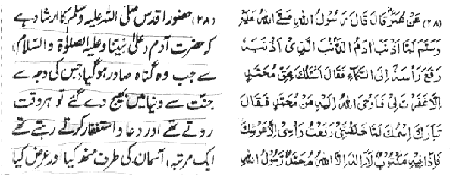 (۲۸) عَنْ عُمَرَ قَالَ قَالَ رَسُولُ اللهِ صَلَّى اللهُ عَلَيْهِ
وَسَلَّمَ لَمَّا أَذْنَبَ آدَمُ الذَّنْبَ الَّذِي أَذْنَبَهُ
رَفَعَ رَأْسَهُ إِلَى السَّمَاءِ فَقَالَ أَسْأَلُكَ بِحَقِّ مُحَمَّدٍ
إِلَّا غَفَرْتَ لِي فَأَوْحَى اللهُ إِلَيْهِ مَنْ مُحَمَّدٌ فَقَالَ
تَبَارَكَ اسْمُكَ لَمَّا خَلَقْتَنِي رَفَعْتُ رَأْسِي إِلَى عَرْشِكَ
فَإِذَا فِيهِ مَكْتُوبٌ لَا إِلٰهَ إِلَّا اللهُ مُحَمَّدٌ رَّسُولُ اللهِ
(۲۸) حضور اقدس صلی اللہ علیہ وسلم کا ارشاد ہے
کہ حضرت آدم (علیٰ نبینا وعلیہ الصلوٰۃ والسلام)
سے جب وہ گناہ صادر ہوگیا (جس کی وجہ سے
جنت سے دنیا میں بھیج دے گئے تو ہر وقت
روتے تھے اور دعا و استغفار کرتے رہتے تھے
ایک مرتبہ آسمان کی طرف منھ کیا اور عرض کیا